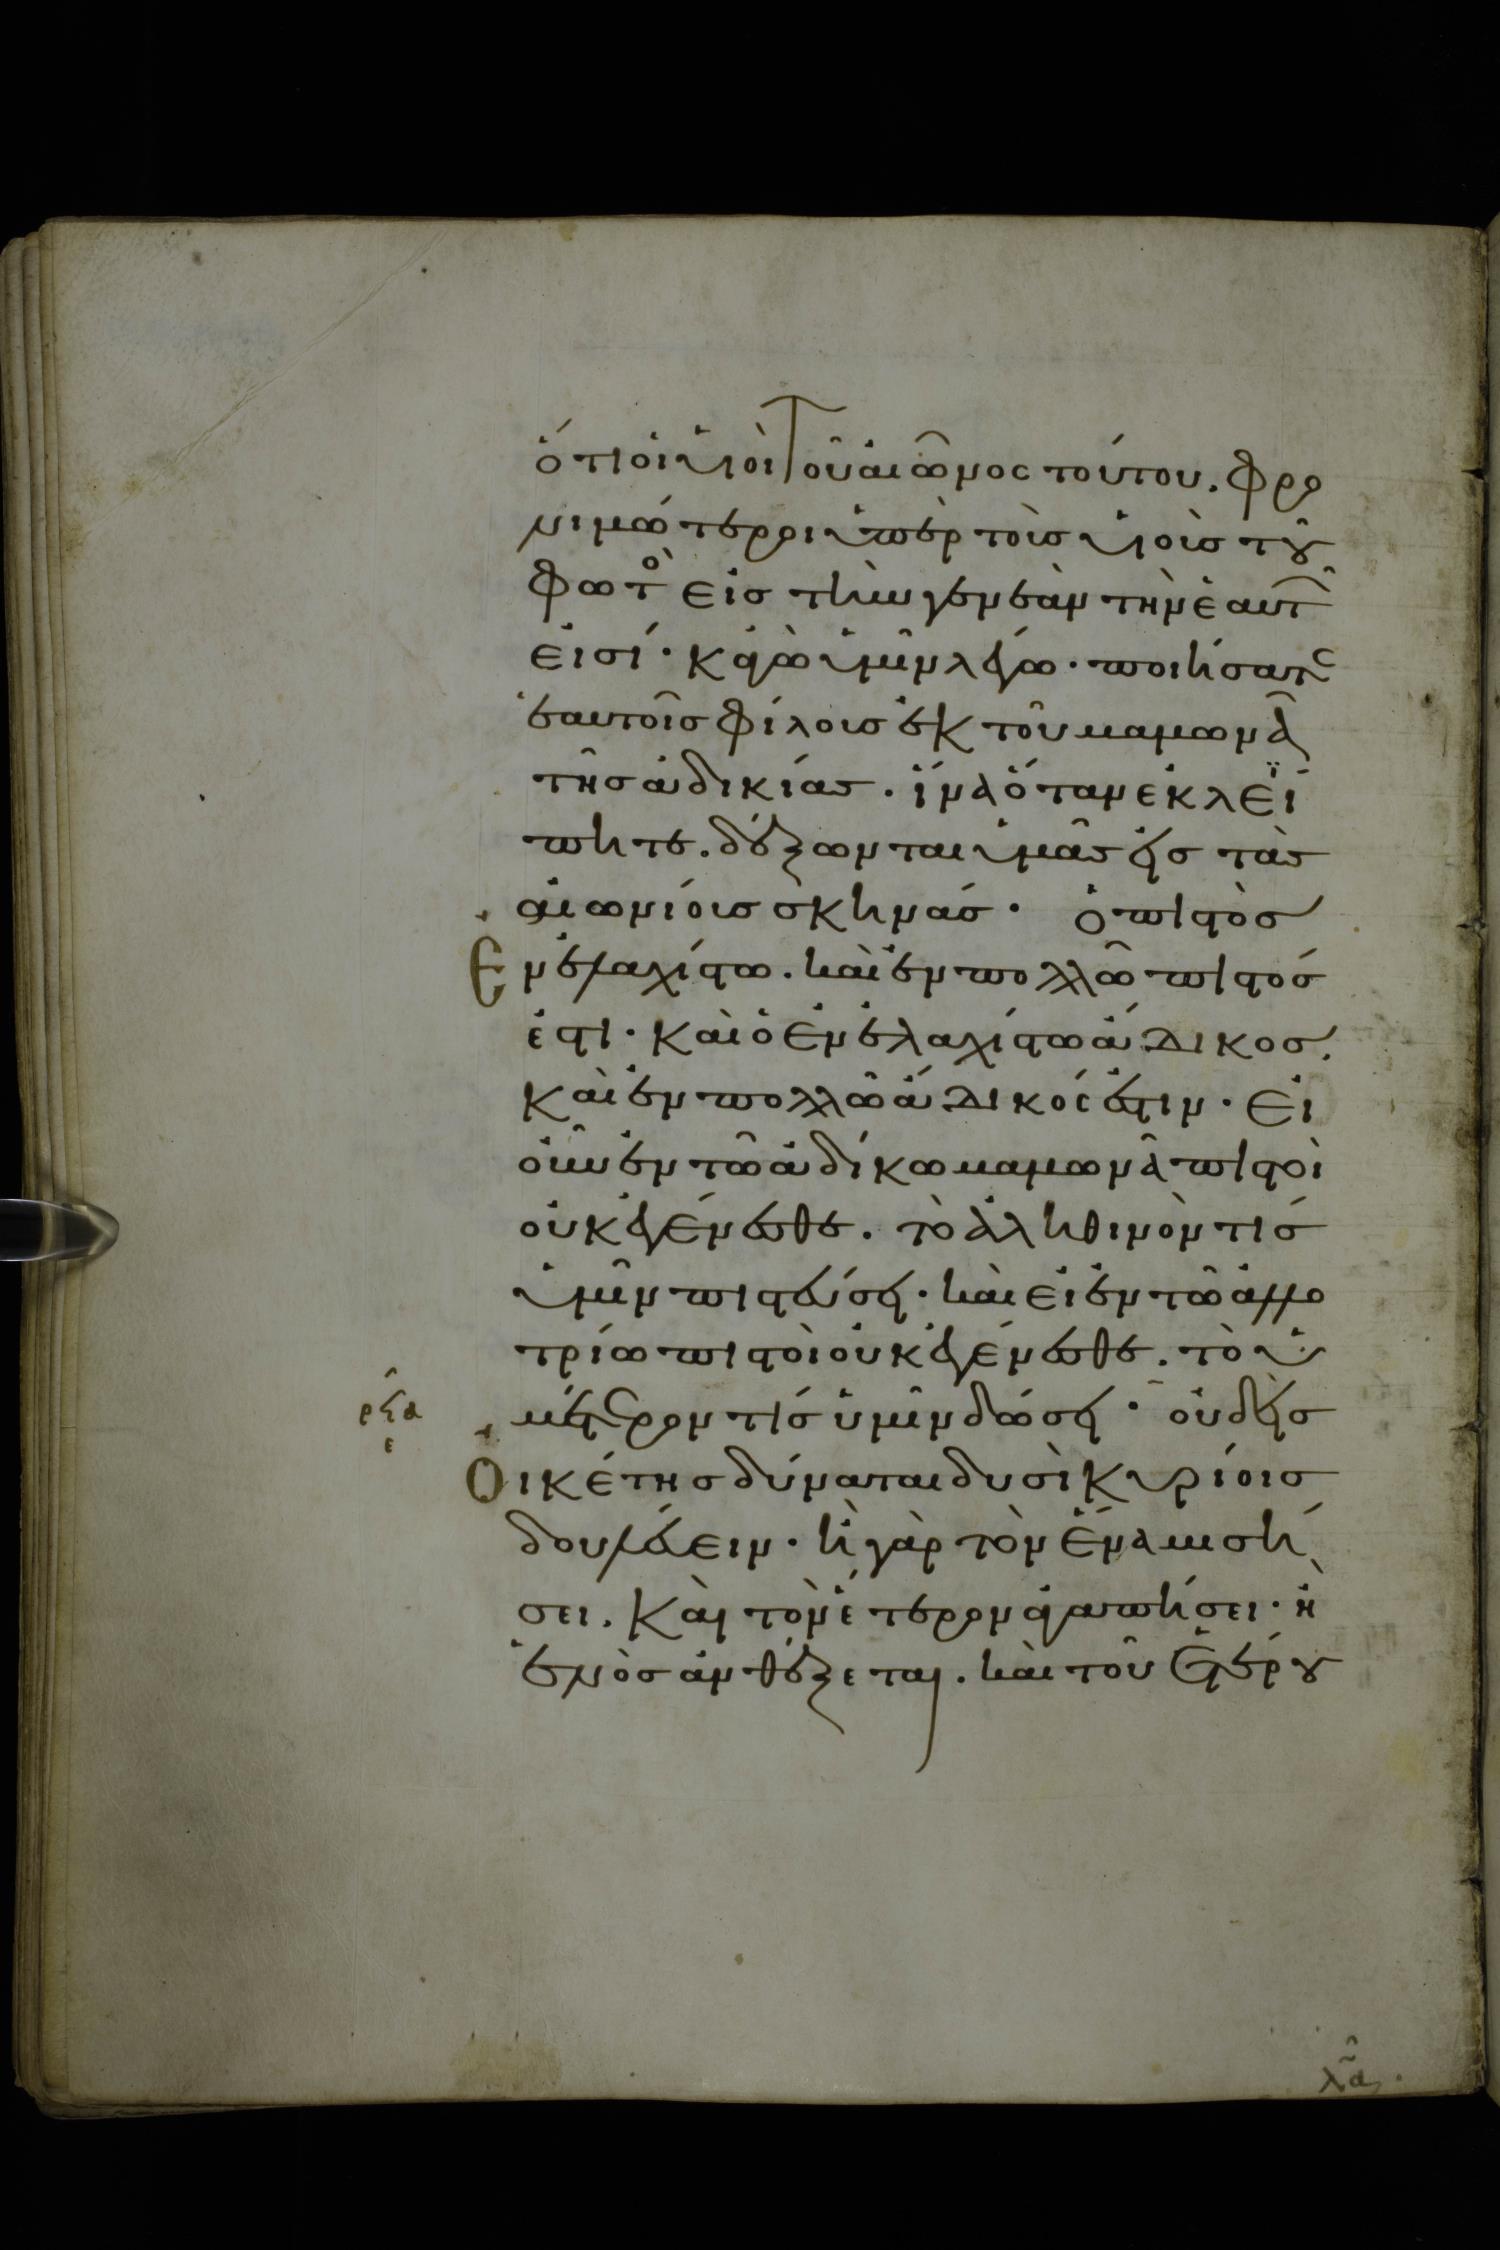 ὅτι οἱ υἱοὶ τοῦ αἰῶνος τούτου. φρο
νιμώτεροι ὑπὲρ τοὶς υἱοὶς τοῦ
φωτὸ εἰς τὴν γενεὰν τὴν ἑαυτ͂
εἰσί· κἀγὼ ὑμῖν λέγω· ποιήσατε
ἑαυτοῖς φίλοις ἐκ τοῦ μαμωνᾶ
τῆς ἀδικίας. ἵνα ὅταν ἐκλεί
πητε. δέξωνται ὑμᾶς εἰς τὰς
αἰωνίοις σκηνάς· ὁ πιστὸς
Ἐν ἐλαχίστω. καὶ ἐν πολλῶ πιστός
ἐστι· καὶ ὁ ἐν ἐλαχίστω ἄδικος.
καὶ ἐν πολλῶ ἄδικός ἐστιν· εἰ
οὖν ἐν τῶ ἀδίκω μαμωνᾶ πιστοὶ
οὐκ ἐγένεσθε. τὸ ἀληθινὸν τίς
ὑμῖν πιστεύσει· καὶ εἰ ἐν τῶ ἀλλο
τρίω πιστοὶ οὐκ ἐγένεσθε. τὸ ὑ
μέτερον τίς ὑμῖν δώσει· οὐδεὶς
Οἰκέτης δύναται δυσὶ κυρίοις
δουλεύειν· ἢ γὰρ τὸν ἕνα μισή
σει. καὶ τὸν ἕτερον ἀγαπήσει· ἢ
ἑνὸς ἀνθέξεται. καὶ τοῦ ἑτέρου
ρϟα
ε
λα